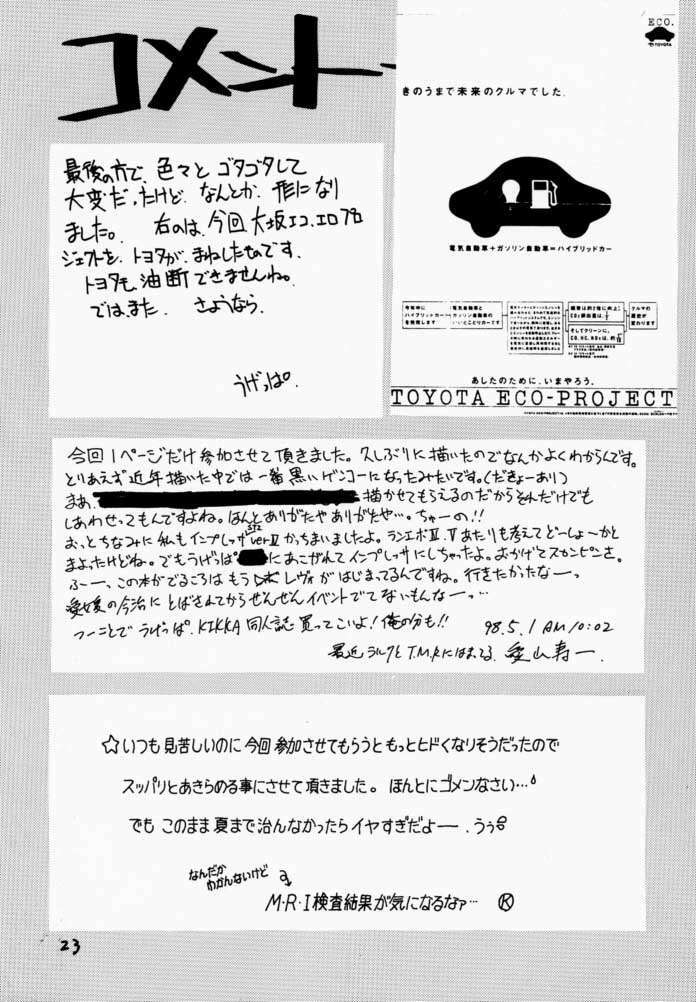 コメント
最後の方で、色々と ゴタゴタして
大変だったけど、なんとか、形になり
ました。 右のは、今回大坂エコ、エロプロ
ジェクトを、トヨタが、まねしたものです。
トヨタも、油断できませんね。
では、また、 さようなら、
うげっぱ。
ECO.
TOYOTA
きのうまで未来のクルマでした。
電気自動車+ガソリン自動車=ハイブリッドカー
今年中に
ハイブリッドカー
を発売します
電気自動車と
ガソリン自動車の
いいとこどりカーです
燃費は約2倍に向上。
CO2排出量は、1/2
そしてクリーンに。
CO, HC, NOxは、約1/10
クルマの
歴史が
変わります
あしたのために、いまやろう。
TOYOTA ECO-PROJECT
今回1ページだけ参加させて頂きました。久しぶりに描いたのでなんかよくわからんです。
とりあえず近年描いた中では一番黒いゲンコーになったみたいです。(だきょーあり)
まあ、 描かせてもらえるのだからそれだけでも
しあわせってもんですよね。ほんとありがたやありがたや…。ちゅーの!!
おっとちなみに私もインプレッサ STi verⅡ かっちまいましたよ。ランエボⅣ.Ⅴあたりも考えてどーしょーかと
まよったけどね。でもうげっぱ にあこがれてインプレッサにしちゃったよ。おかげでスカンピンさ。
ふーー、この本がでるころは もう レヴォ がはじまってるんですね。行きたかったなーっ
愛媛の今治に とばされてからぜんぜんイベントでてないもんなーっ…
つーことで うげっぱ、KIKKA 同人誌 買ってこいよ! 俺の分も!!
98.5.1 AM10:02
最近 ラルクと T.M.Rにはまってる 愛山寿一.
☆いつも見苦しいのに今回参加させてもらうともっとヒドくなりそうだったので
スッパリとあきらめる事にさせて頂きました。ほんとにゴメンなさい…
でも このまま夏まで治んなかったらイヤすぎだよーー.うぅ
なんだか
わかんないけど
M・R・I検査結果が気になるなァ… Ⓚ
23